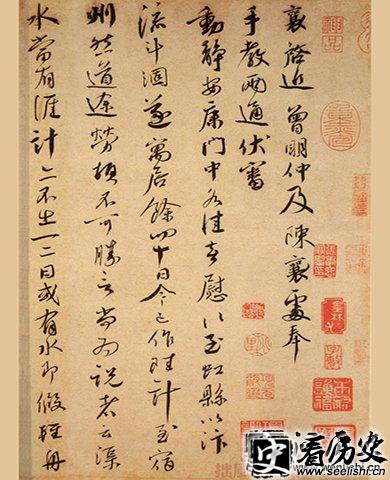 襄啓近曾明仲及陳襄處奉
手教兩通伏審
動靜安康門中各佳喜慰〻至虹縣以汴
流斗涸遂寓居餘四十日今已作陸計至宿
州然道途勞頓不可勝言尚為說者云渠
水當有涯計亦不出一二日或有水即假輕舟
史看历史
www.seelishi.com